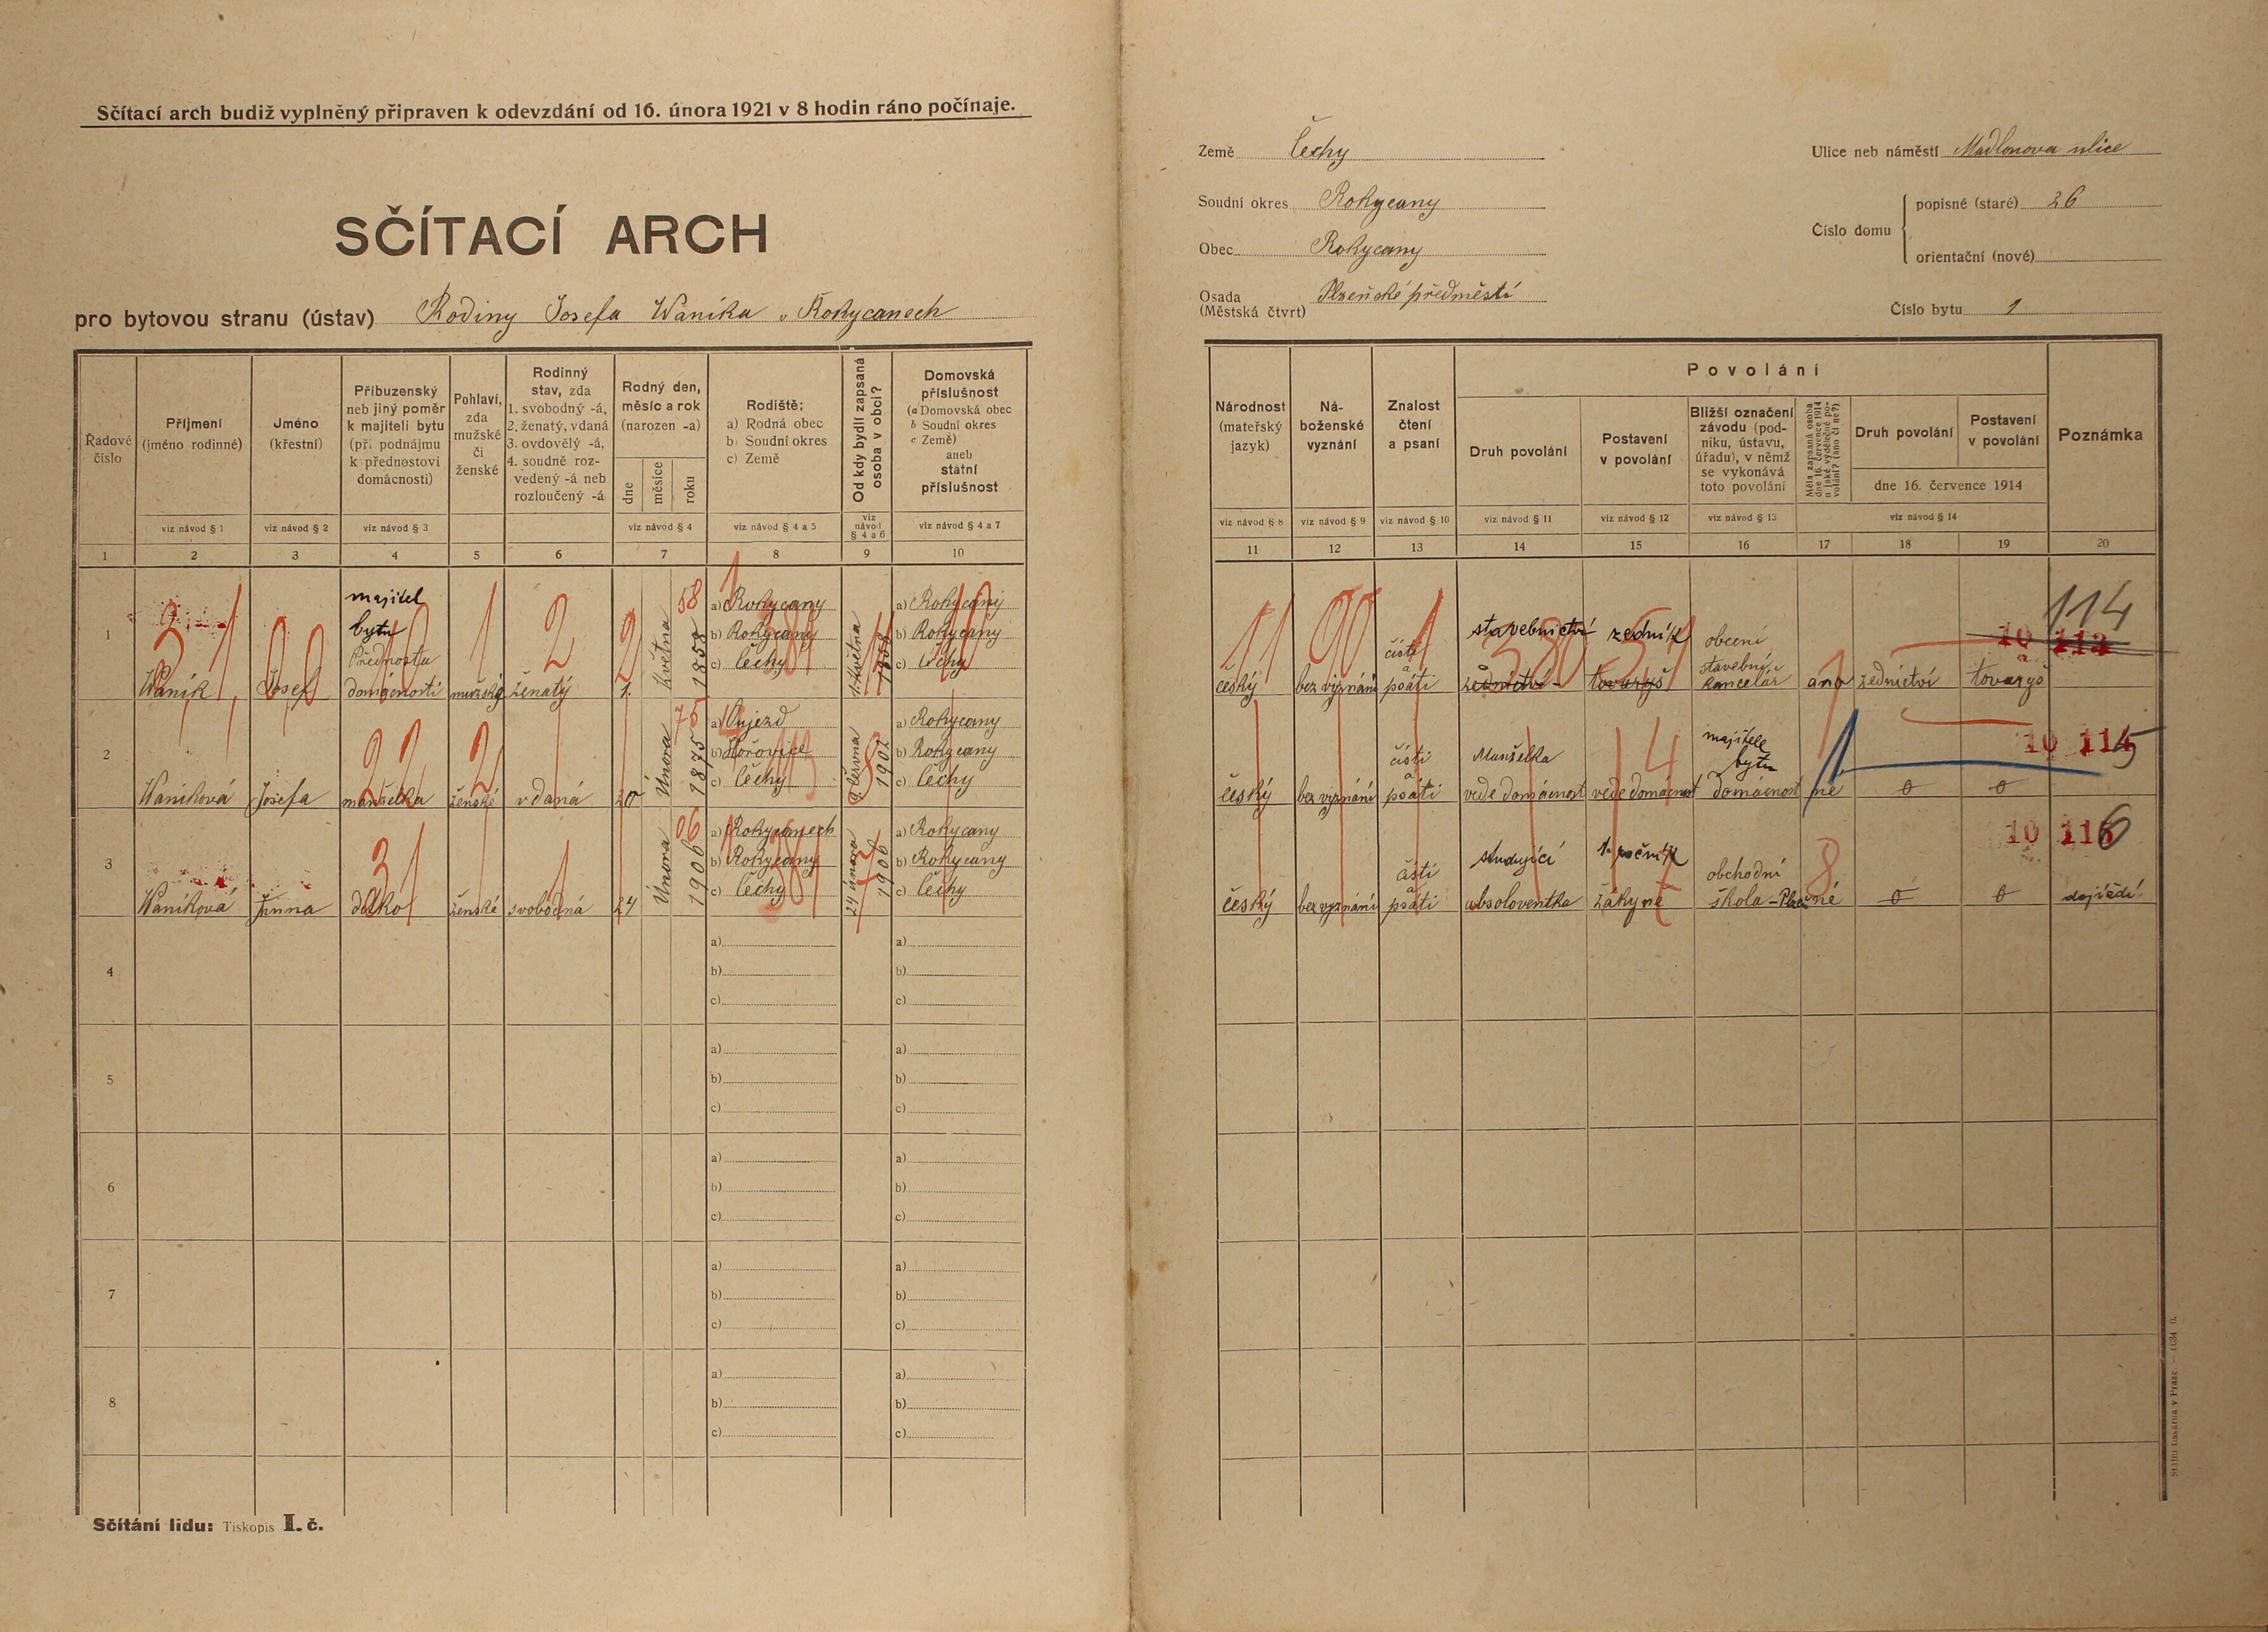 Sčítací arch budiž vyplněný připraven k odevzdání od 16. února 1921 v 8 hodin ráno počínaje.
SČÍTACÍ ARCH
pro bytovou stranu (ústav) Rodiny Josefa Waníka v Rokycanech
Země Čechy
Soudní okres Rokycany
Obec Rokycany
Osada (Městská čtvrt) Plzeňské předměstí
Ulice neb náměstí Madlonova ulice
Číslo domu
popisné (staré) 26
orientační (nové)
Číslo bytu 1
Řadové číslo
Příjmení (jméno rodinné)
Jméno (křestní)
Příbuzenský neb jiný poměr k majiteli bytu (při podnájmu k přednostovi domácnosti)
Pohlaví, zda mužské či ženské
Rodinný stav, zda
1. svobodný -á,
2. ženatý, vdaná
3. ovdovělý -á,
4. soudně rozvedený -á neb rozloučený -á
Rodný den, měsíc a rok (narozen -a)
dne
měsíce
roku
Rodiště:
a) Rodná obec
b) Soudní okres
c) Země
Od kdy bydlí zapsaná osoba v obci?
Domovská příslušnost
(a Domovská obec
b Soudní okres
c Země)
aneb
státní příslušnost
viz návod § 1
viz návod § 2
viz návod § 3
viz návod § 4
viz návod § 4 a 5
viz návod § 4 a 6
viz návod § 4 a 7
1 2 3 4 5 6 7 8 9 10
Národnost (mateřský jazyk)
Náboženské vyznání
Znalost čtení a psaní
Povolání
Druh povolání
Postavení v povolání
Bližší označení závodu (podniku, ústavu, úřadu), v němž se vykonává toto povolání
Měla zapsaná osoba dne 16. července 1914 nějaké výdělečné povolání? (ano či ne?)
Druh povolání
Postavení v povolání
dne 16. července 1914
Poznámka
viz návod § 8
viz návod § 9
viz návod § 10
viz návod § 11
viz návod § 12
viz návod § 13
viz návod § 14
11 12 13 14 15 16 17 18 19 20
1
Waník
Josef
majitel bytu
Přednosta domácnosti
mužské
ženatý
1.
Května
1858
58
a) Rokycany
b) Rokycany
c) Čechy
1. Května 1858
a) Rokycany
b) Rokycany
c) Čechy
český
bez vyznání
čísti a psáti
stavebnictví
zednictví
zedník
tovaryš
obecní stavební kancelář
ano
zednictví
tovaryš
114
10 113
2
Waníková
Josefa
manželka
ženské
vdaná
20
Února
1875
75
a) Oujezd
b) Hořovice
c) Čechy
1. Června 1902
a) Rokycany
b) Rokycany
c) Čechy
český
bez vyznání
čísti a psáti
Manželka
vede domácnost
vede domácnost
majitele bytu
domácnost
ne
0
0
10 115
3
Waníková
Anna
dítko
ženské
svobodná
24
Února
1906
06
a) Rokycanech
b) Rokycany
c) Čechy
24 února 1906
a) Rokycany
b) Rokycany
c) Čechy
český
bez vyznání
čísti a psáti
studující
absoloventka
1. ročník
žákyně
obchodní škola - Plzeň
né
0
0
10 116
dojíždí!
4
a)
b)
c)
a)
b)
c)
5
a)
b)
c)
a)
b)
c)
6
a)
b)
c)
a)
b)
c)
7
a)
b)
c)
a)
b)
c)
8
a)
b)
c)
a)
b)
c)
Sčítání lidu: Tiskopis I. č.